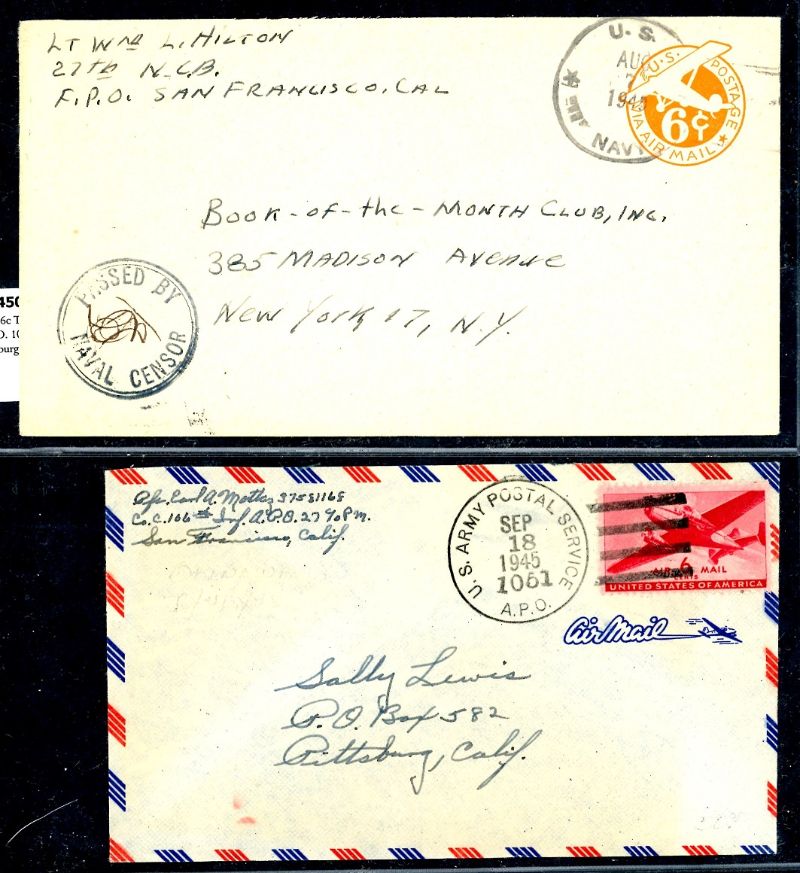 LT WM L. HILTON
27TH N.C.B.
F.P.O. SAN FRANCISCO, CAL
U.S.
AUG
1945
NAVY
U.S. POSTAGE
6¢
VIA AIR MAIL
BOOK-OF-THE-MONTH CLUB, INC.
385 MADISON AVENUE
NEW YORK 17, N.Y.
PASSED BY
NAVAL CENSOR
450
6c T
D. 10
burg
Pfc. Earl A. 37581168
Co. C. 106th Inf. A.P.O. 27 % P.M.
San Francisco, Calif.
U.S. ARMY POSTAL SERVICE
SEP
18
1945
1051
A.P.O.
AIR 6 MAIL
CENTS
UNITED STATES OF AMERICA
Air Mail
Sally Lewis
P.O. Box 582
Pittsburg, Calif.